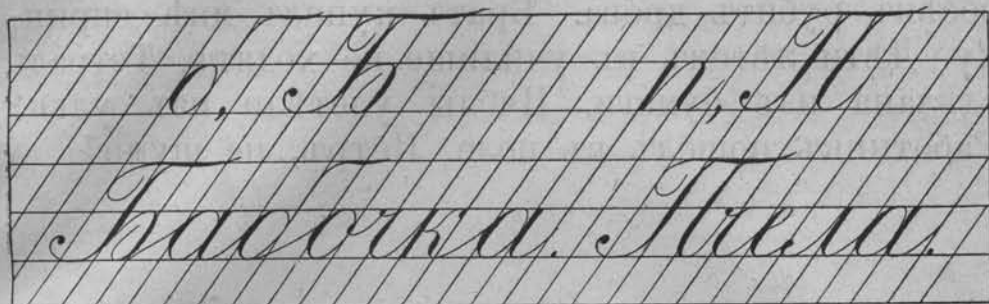 б, Б п, П
Бабочка. Пчела.